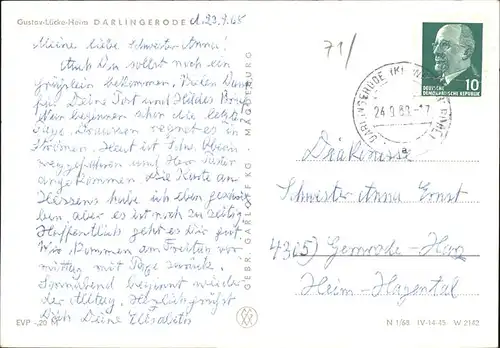 Gustav-Lücke-Heim DARLINGERODE
d. 23.9.68
Meine liebe Schwester Anna!
Auch Du sollst noch ein
Grüßlein bekommen. Vielen Dank
für Deine Post und Brief
Nun beginnen schon die letzten
Tage. Draussen regnet es in
Strömen. Heut ist Schw.
weggefahren und Herr
angekommen. Die Karte an
habe ich eben geschrie-
ben, aber es ist noch zu zeitig.
Hoffentlich geht es Dir gut.
Wir kommen am Freitag vor-
mittag mit zurück.
Sonnabend beginnt wieder
der Alltag. Herzlich grüßt
Dich Deine Elisabeth
EVP -,20 M
GEBR. GARLOFF KG · MAGDEBURG
71/
DARLINGERODE
24.9.68.-7
a
DEUTSCHE
DEMOKRATISCHE REPUBLIK
10
Diakonisse
Schwester Anna Ernst
4305) Gernrode-Harz
Heim-Hagental
N 1/68 IV-14-45 W 2142